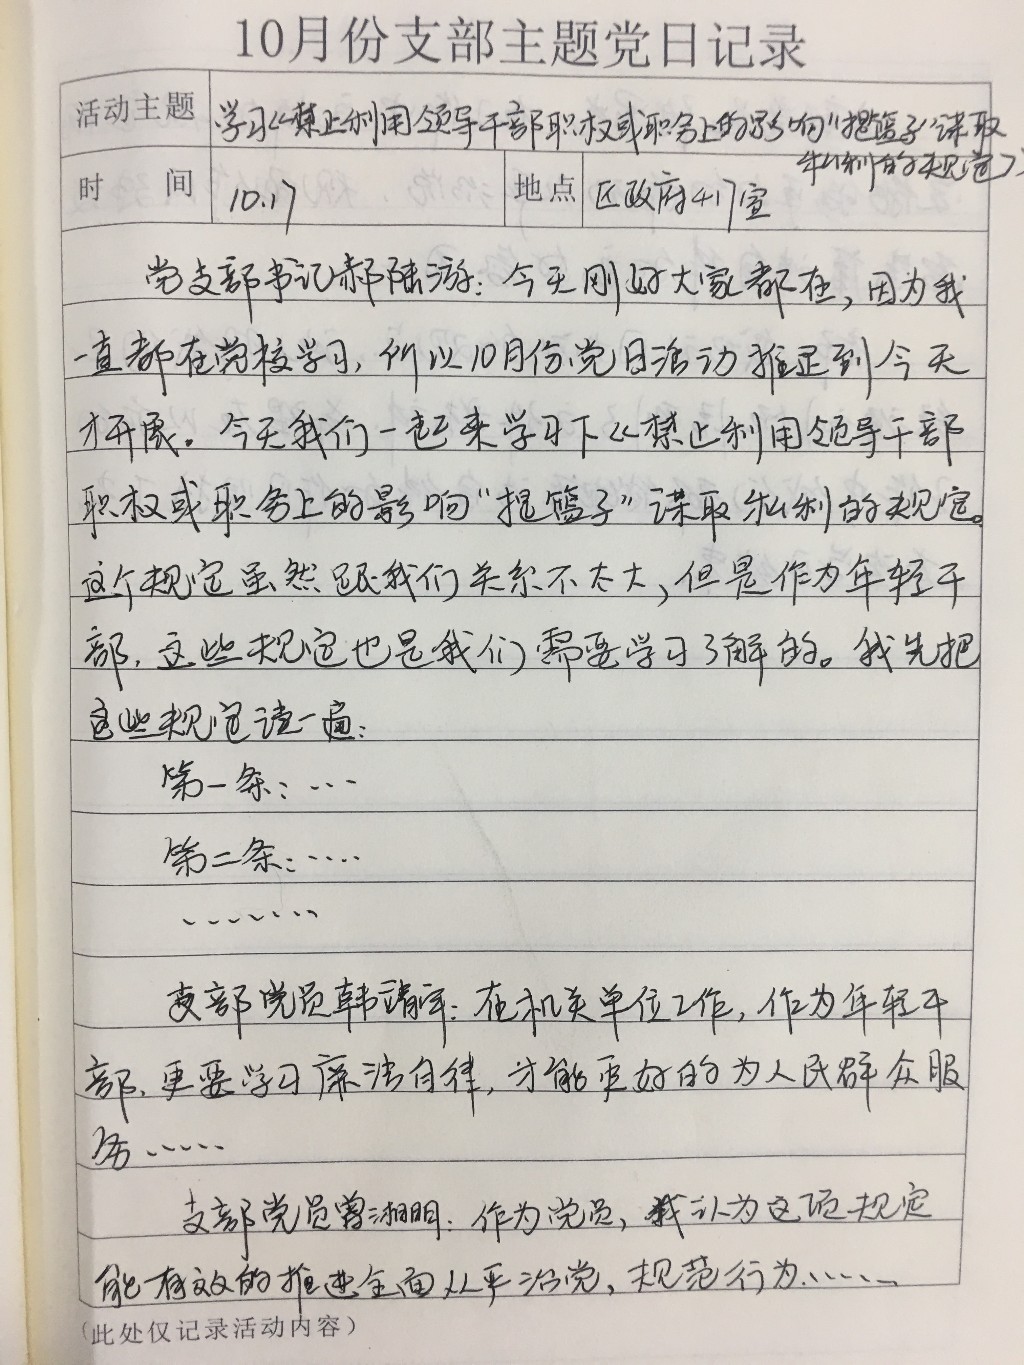 10月份支部主题党日记录
活动主题
学习《禁止利用领导干部职权或职务上的影响"提篮子"谋取
私利的规定》
时 间
10.17
地点
区政府417室
党支部书记郝陆游：今天刚好大家都在，因为我
一直都在党校学习，所以10月份党日活动推迟到今天
才开展。今天我们一起来学习下《禁止利用领导干部
职权或职务上的影响"提篮子"谋取私利的规定。
这个规定虽然跟我们关系不太大，但是作为年轻干
部，这些规定也是我们需要学习了解的。我先把
这些规定读一遍：
第一条：……
第二条：……
……
支部党员韩靖宇：在机关单位工作，作为年轻干
部，更要学习廉洁自律，才能更好的为人民群众服
务……
支部党员曾湘明：作为党员，我认为这项规定
能有效的推进全面从严治党，规范行为……
（此处仅记录活动内容）